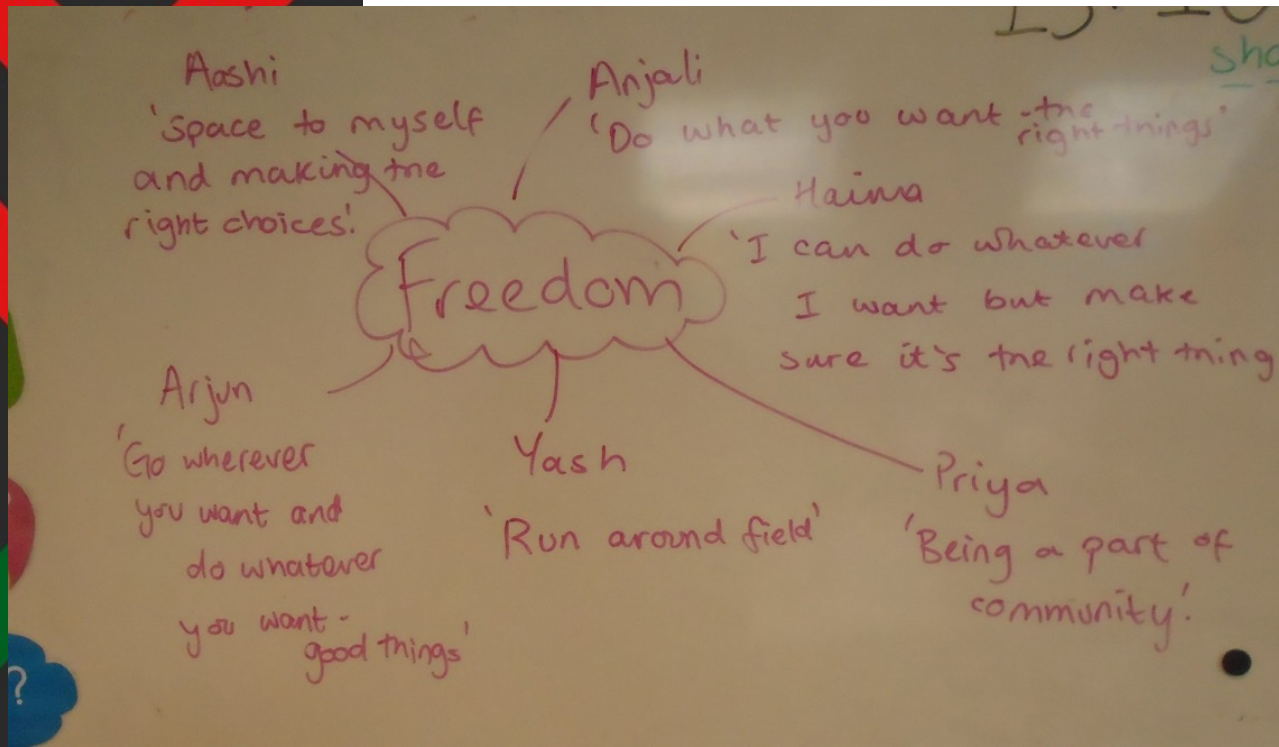 Aashi
'space to myself
and making the
right choices'.
Anjali
'Do what you want - the
right things'
Haima
'I can do whatever
I want but make
sure it's the right thing
Freedom
Arjun
'Go wherever
you want and
do whatever
you want -
good things'
Yash
'Run around field'
Priya
'Being a part of
community'.
?